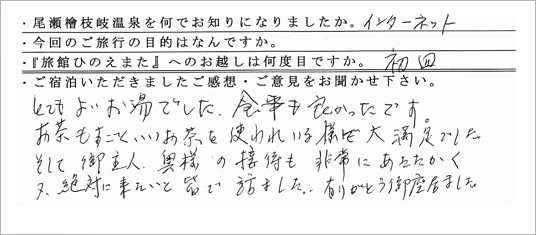 ・尾瀬檜枝岐温泉を何でお知りになりましたか。インターネット
・今回のご旅行の目的はなんですか。
・『旅館ひのえまた』へのお越しは何度目ですか。 初回
・ご宿泊いただきましたご感想・ご意見をお聞かせ下さい。
とてもよいお湯でした。食事も良かったです。
お茶もすごくいいお茶を使われている様で大満足でした
そして御主人、奥様の接待も非常にあたたかく
又、絶対に来たいと皆で話ました。ありがとう御座居ました